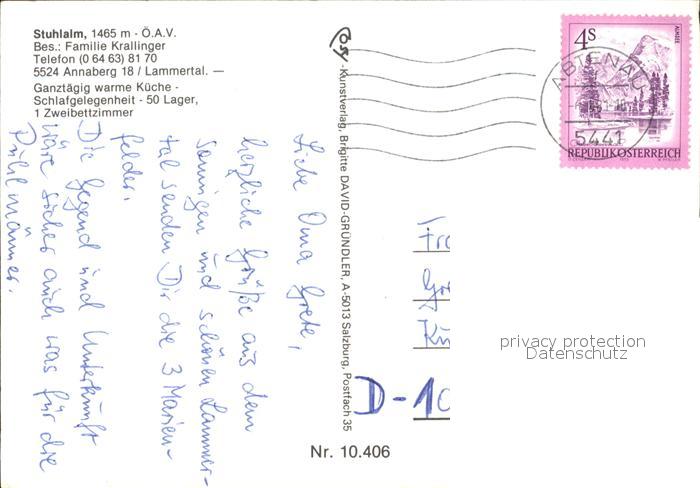 Stuhlalm, 1465 m - Ö.A.V.
Bes.: Familie Krallinger
Telefon (0 64 63) 81 70
5524 Annaberg 18 / Lammertal. —
Ganztägig warme Küche -
Schlafgelegenheit - 50 Lager,
1 Zweibettzimmer
Liebe Oma Grete,
herzliche Grüße aus dem
sonnigen und schönen Lammer-
tal senden Dir die 3 Marien-
felder.
Die Gegend und Unterkunft
wäre sicher auch was für die
Pühlmänner.
-Kunstverlag, Brigitte DAVID-GRÜNDLER, A-5013 Salzburg, Postfach 35
Nr. 10.406
4 S
ALMSEE
REPUBLIK ÖSTERREICH
ABTENAU
5441
Fr
D-10
privacy protection
Datenschutz